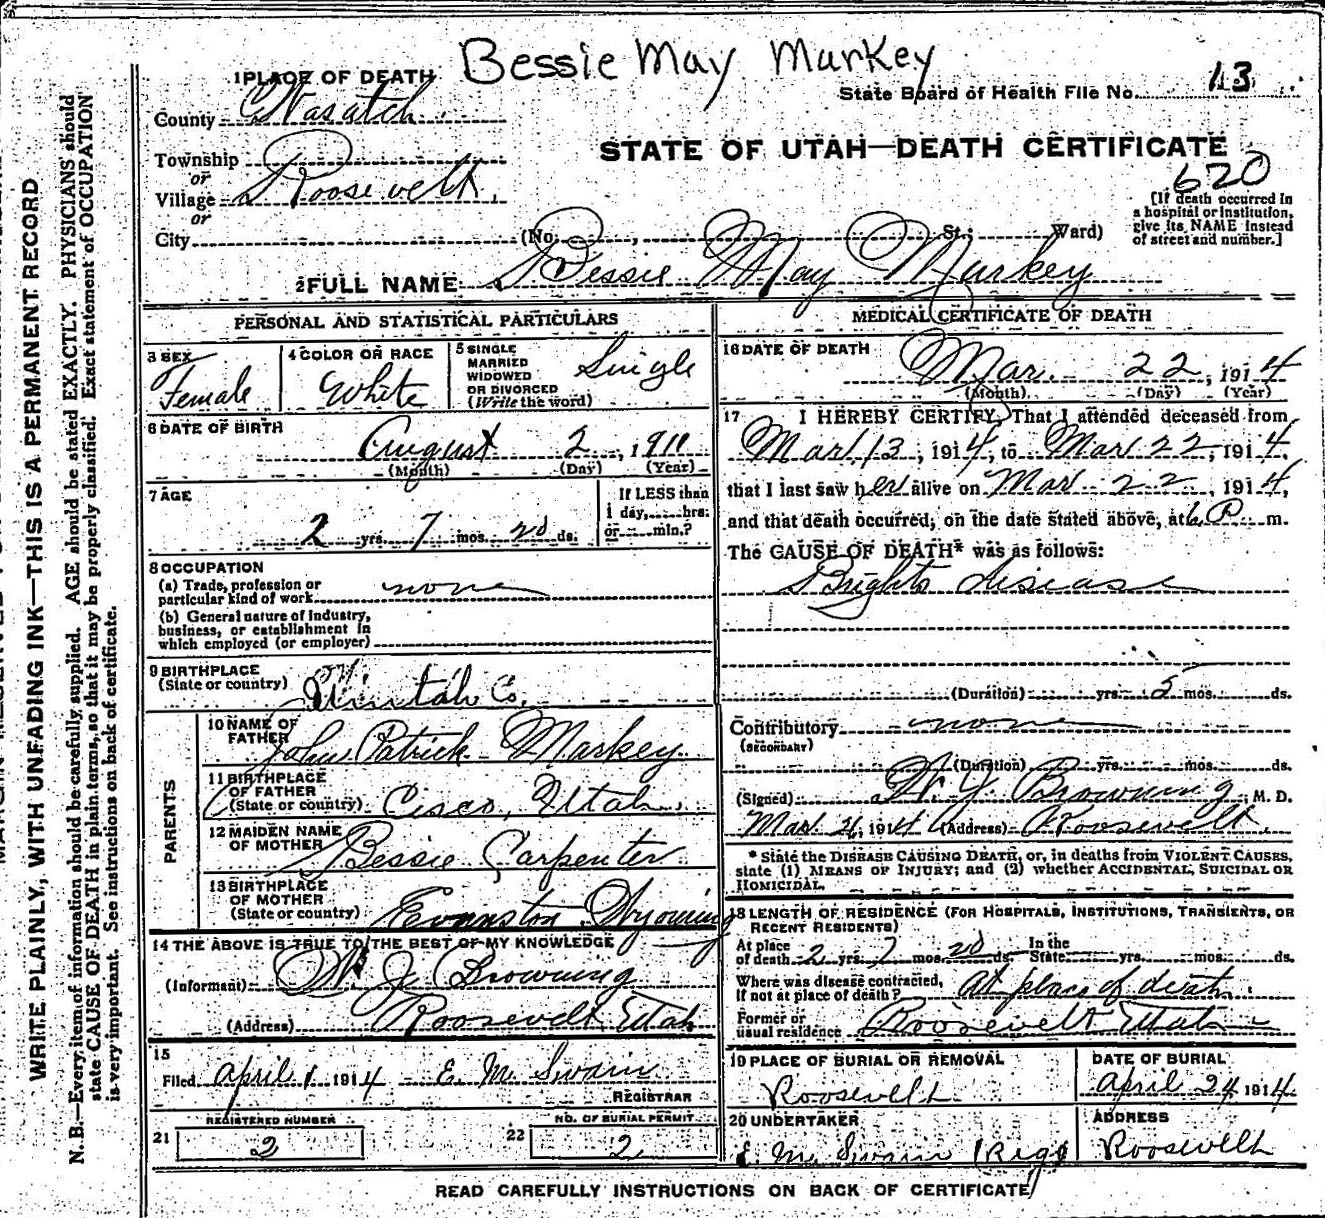 Bessie May Markey
1 PLACE OF DEATH
State Board of Health File No. 13
County Wasatch
STATE OF UTAH—DEATH CERTIFICATE
620
Township
or
Village Roosevelt
or
City (No. , St.; Ward)
[If death occurred in
a hospital or institution,
give its NAME instead
of street and number.]
2 FULL NAME Bessie May Markey
PERSONAL AND STATISTICAL PARTICULARS
3 SEX
Female
4 COLOR OR RACE
White
5 SINGLE
MARRIED
WIDOWED
OR DIVORCED
(Write the word)
Single
6 DATE OF BIRTH
August 2, 1911
(Month) (Day) (Year)
7 AGE
2 yrs. 7 mos. 20 ds.
If LESS than
1 day, hrs.
or min.?
8 OCCUPATION
(a) Trade, profession or
particular kind of work none
(b) General nature of industry,
business, or establishment in
which employed (or employer)
9 BIRTHPLACE
(State or country) Uintah Co.
PARENTS
10 NAME OF
FATHER John Patrick Markey
11 BIRTHPLACE
OF FATHER
(State or country) Cisco, Utah.
12 MAIDEN NAME
OF MOTHER Bessie Carpenter
13 BIRTHPLACE
OF MOTHER
(State or country) Evanston Wyoming
14 THE ABOVE IS TRUE TO THE BEST OF MY KNOWLEDGE
(Informant) W J Browning
(Address) Roosevelt Utah
15
Filed April 1 1914 E. M. Swain
REGISTRAR
REGISTERED NUMBER
21 2
NO. OF BURIAL PERMIT
22 2
MEDICAL CERTIFICATE OF DEATH
16 DATE OF DEATH
Mar. 22, 1914
(Month) (Day) (Year)
17 I HEREBY CERTIFY, That I attended deceased from
Mar 13, 1914, to Mar 22, 1914,
that I last saw her alive on Mar 22, 1914,
and that death occurred, on the date stated above, at 6 P. m.
The CAUSE OF DEATH* was as follows:
Brights disease
(Duration) yrs. 5 mos. ds.
Contributory none
(SECONDARY)
(Duration) yrs. mos. ds.
(Signed) W. J. Browning, M. D.
Mar 1914 (Address) Roosevelt.
* State the DISEASE CAUSING DEATH, or, in deaths from VIOLENT CAUSES,
state (1) MEANS OF INJURY; and (2) whether ACCIDENTAL, SUICIDAL OR
HOMICIDAL.
18 LENGTH OF RESIDENCE (FOR HOSPITALS, INSTITUTIONS, TRANSIENTS, OR
RECENT RESIDENTS)
At place
of death 2 yrs. 7 mos. 20 ds. In the
State yrs. mos. ds.
Where was disease contracted,
If not at place of death? At place of death.
Former or
usual residence Roosevelt Utah
19 PLACE OF BURIAL OR REMOVAL
Roosevelt
DATE OF BURIAL
April 24 1914
20 UNDERTAKER
E. M. Swain (Regs)
ADDRESS
Roosevelt
READ CAREFULLY INSTRUCTIONS ON BACK OF CERTIFICATE
WRITE PLAINLY, WITH UNFADING INK—THIS IS A PERMANENT RECORD
N. B.—Every item of information should be carefully supplied. AGE should be stated EXACTLY. PHYSICIANS should
state CAUSE OF DEATH in plain terms, so that it may be properly classified. Exact statement of OCCUPATION
is very important. See instructions on back of certificate.